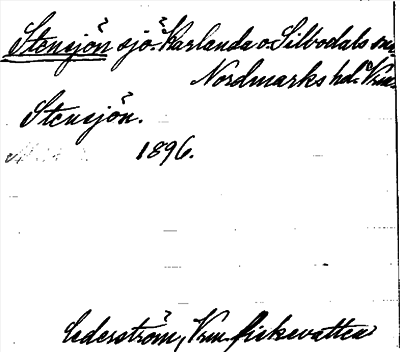 Stensjön sjö Karlanda o. Silbodals snr
Nordmarks hd. Vrm.
Stensjön.
1896.
Cederström, Vrm. fiskevatten